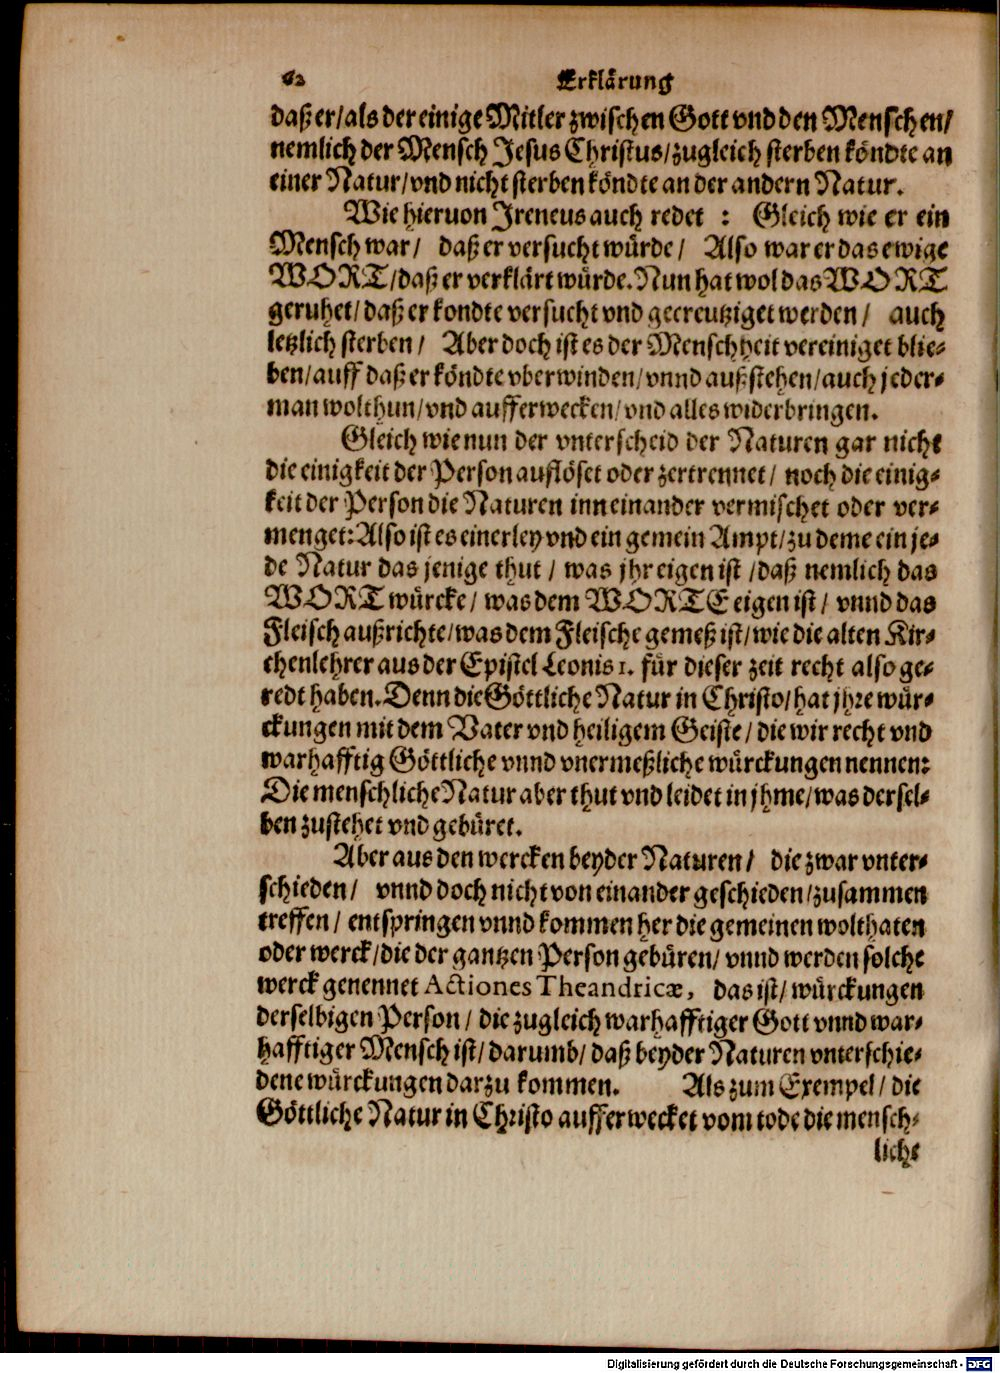 62 Erklärung
daß er/als der einige Mitler zwischen Gott vnd den Menschen/
nemlich der Mensch Jesus Christus/zugleich sterben köndte an
einer Natur/vnd nicht sterben köndte an der andern Natur.
Wie hieruon Ireneus auch redet : Gleich wie er ein
Mensch war/ daß er versucht würde/ Also war er das ewige
WORT/daß er verklärt würde. Nun hat wol das WORT
geruhet/daß er kondte versucht vnd gecreutziget werden/ auch
letzlich sterben/ Aber doch ist es der Menschheit vereiniget blie-
ben/auff daß er köndte vberwinden/vnnd außstehen/auch jeder-
man wolthun/vnd aufferwecken/vnd alles widerbringen.
Gleich wie nun der vnterscheid der Naturen gar nicht
die einigkeit der Person auflöset oder zertrennet/ noch die einig-
keit der Person die Naturen inn einander vermischet oder ver-
menget: Also ist es einerley vnd ein gemein Ampt/zu deme ein je-
de Natur das jenige thut/ was jhr eigen ist/daß nemlich das
WORT würcke/ was dem WORTE eigen ist/ vnnd das
Fleisch außrichte/was dem Fleische gemeß ist/wie die alten Kir-
chenlehrer aus der Epistel Leonis 1. für dieser zeit recht also ge-
redt haben. Denn die Göttliche Natur in Christo/hat jhre wür-
ckungen mit dem Vater vnd heiligem Geiste/die wir recht vnd
warhafftig Göttliche vnnd vnermeßliche würckungen nennen:
Die menschliche Natur aber thut vnd leidet in jhme/was dersel-
ben zustehet vnd gebüret.
Aber aus den wercken beyder Naturen/ die zwar vnter-
schieden/ vnnd doch nicht von einander geschieden/zusammen
treffen/ entspringen vnnd kommen her die gemeinen wolthaten
oder werck/die der gantzen Person gebüren/ vnnd werden solche
werck genennet Actiones Theandricæ, das ist/würckungen
derselbigen Person/ die zugleich warhafftiger Gott vnnd war-
hafftiger Mensch ist/darumb/daß beyder Naturen vnterschie-
dene würckungen darzu kommen. Als zum Exempel/die
Göttliche Natur in Christo aufferwecket vom tode die mensch-
liche
Digitalisierung gefördert durch die Deutsche Forschungsgemeinschaft - DFG